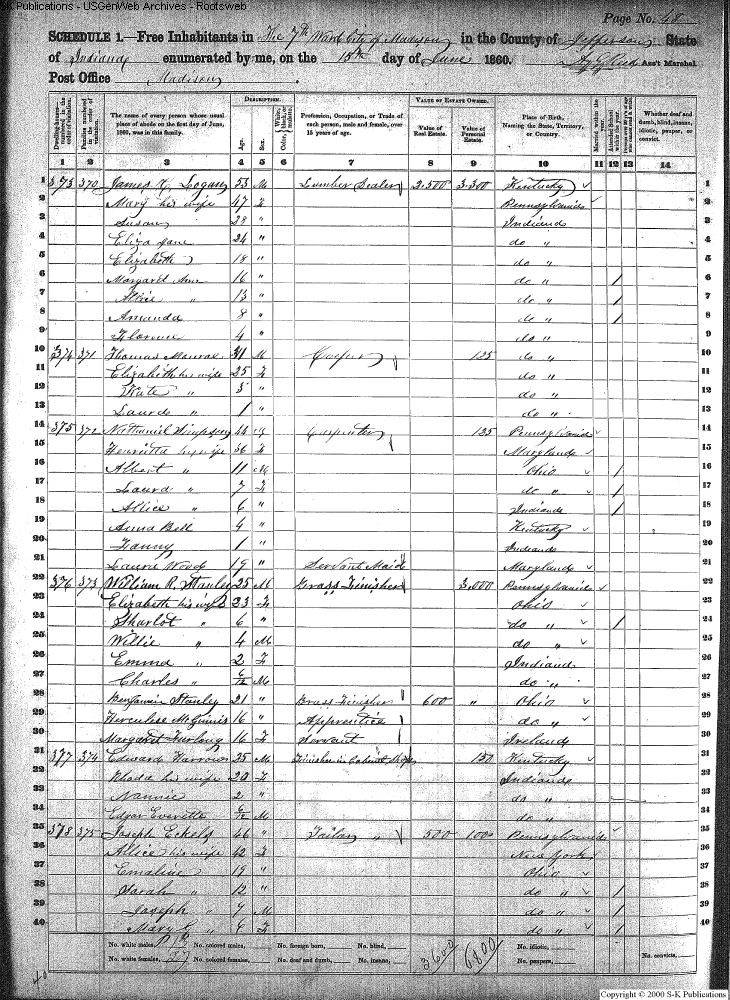 S-K Publications - USGenWeb Archives - Rootsweb
Page No. 48
SCHEDULE 1.—Free Inhabitants in The 7th Ward City of Madison in the County of Jefferson State
of Indiana enumerated by me, on the 15th day of June 1860. Ass't Marshal.
Post Office Madison
DESCRIPTION. VALUE OF ESTATE OWNED.
The name of every person whose usual place of abode on the first day of June, 1860, was in this family.
Age. Sex. White, black, or mulatto. Color,
Profession, Occupation, or Trade of each person, male and female, over 15 years of age.
Value of Real Estate. Value of Personal Estate.
Place of Birth, Naming the State, Territory, or Country.
Married within the year. Attended School within the year.
Whether deaf and dumb, blind, insane, idiotic, pauper, or convict.
1 2 3 4 5 6 7 8 9 10 11 12 13 14
1 373 370 James Logan 53 M Lumber Dealer 2,500 3,300 Kentucky 1
2 Mary his wife 47 F Pennsylvania 2
3 Susan 28 " Indiana 3
4 Eliza Jane 24 " do " 4
5 Elizabeth 18 " do " 5
6 Margaret Ann 16 " do " / 6
7 Allice " 13 " do " / 7
8 Amanda 8 " do " / 8
9 Florence 4 " do " 9
10 374 371 Thomas Monroe 31 M Cooper 125 do " 10
11 Elizabeth his wife 25 F do " 11
12 Kate " 3 " do " 12
13 Laura " 1 " do " 13
14 375 372 Nathaniel Simpson 44 M Carpenter 125 Pennsylvania 14
15 Henrietta his wife 36 F Maryland 15
16 Albert " 11 M Ohio / 16
17 Laura " 7 F do " / 17
18 Allice " 6 " Indiana / 18
19 Anna Bell 4 " Kentucky 19
20 Fanny 1 " Indiana 20
21 Laura Wood 19 " Servant Maid Maryland 21
22 376 373 William R. Stanley 25 M Brass Finisher 3,000 Pennsylvania 22
23 Elizabeth his wife 23 F Ohio 23
24 Sharlot " 6 " do " / 24
25 Willie " 4 M do " 25
26 Emma " 2 F Indiana 26
27 Charles " 6/12 M do " 27
28 Benjamin Stanley 21 " Brass Finisher 600 " Ohio 28
29 Herculese McGinnis 16 " Apprentice do " 29
30 Margaret Furlong 16 F Servant Ireland 30
31 377 374 Edward Harrow 25 M Finisher in Cabinet Shop 150 Kentucky 31
32 Rhoda his wife 20 F Indiana 32
33 Nannie 2 " do " 33
34 Edgar Everette 6/12 M do " 34
35 378 375 Joseph Eckels 46 " Tailor " 500 100 Pennsylvania 35
36 Allice his wife 42 F New York 36
37 Emaline 19 " Ohio 37
38 Sarah " 12 " do " / 38
39 Joseph " 7 M do " / 39
40 Mary " F do " / 40
No. white males, No. colored males, No. foreign born, No. blind, 3600 6800 No. idiotic,
No. white females, 27 No. colored females, No. deaf and dumb, No. insane, No. paupers, No. convicts,
Copyright © 2000 S-K Publications